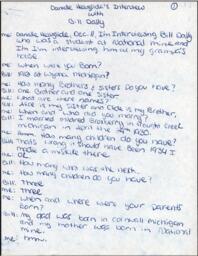 Danelle Heuglide's Interview
with
Bill Daily
①
me: Danelle Heuglide, Dec. 8, I'm Interviewing Bill Daily
who was a student at National mine and
I'm interviewing him at my grandpa's
house.
me: When were you Born?
Bill: 1913 at Michigan.
me: How many Brothers & Sisters do you have?
Bill: One Brother and one Sister
me: What are their names?
Bill: Alice is my Sister and Clide is my Brother,
me: When and who did you marry?
Bill: I married Mildred in
michigan in 1930.
me: How many children do you have?
Bill: That's wrong it should have Been 1934 I
made a mistake there
me: OK.
Bill: How many was the next.
me: How many children do you have?
Bill: Three
me: Three
me: When and where were your parents
Born?
Bill: My dad was born in Cornwall michigan
and my mother was born in National
mine.
me: hmm.